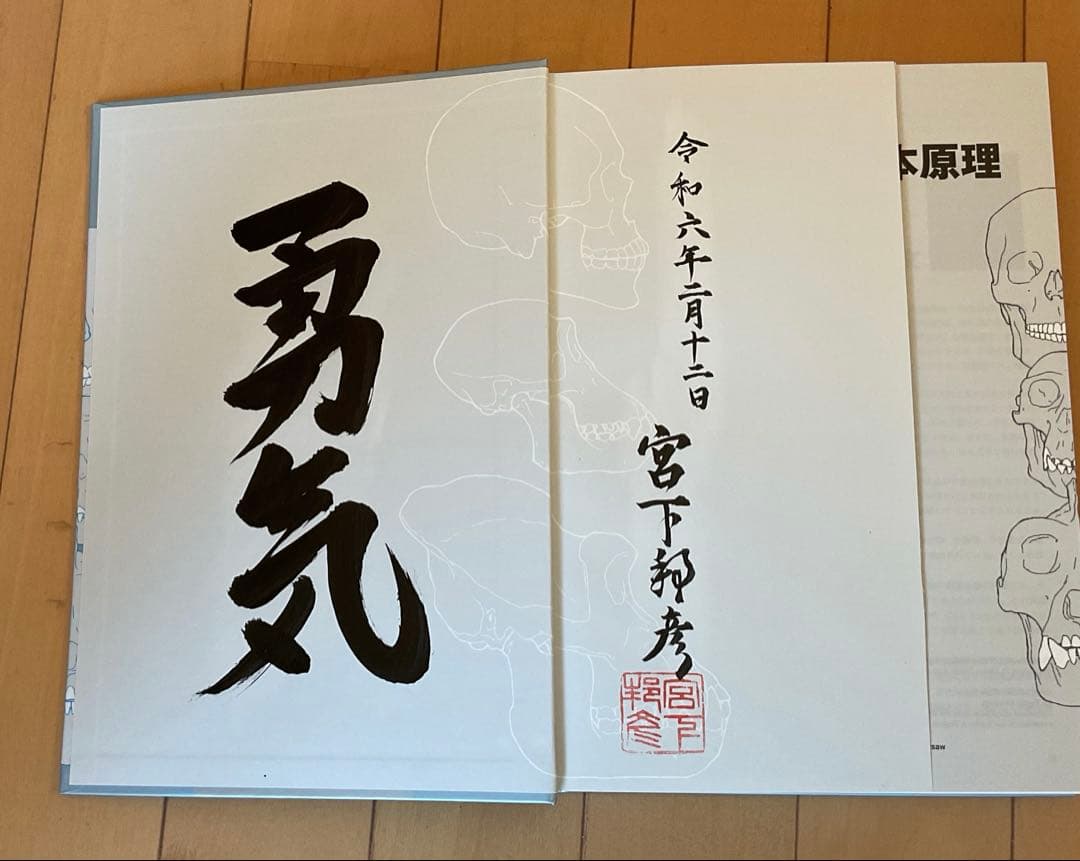 勇気
令和六年二月十二日
宮下邦彦
宮下
邦彦
本原理
saw